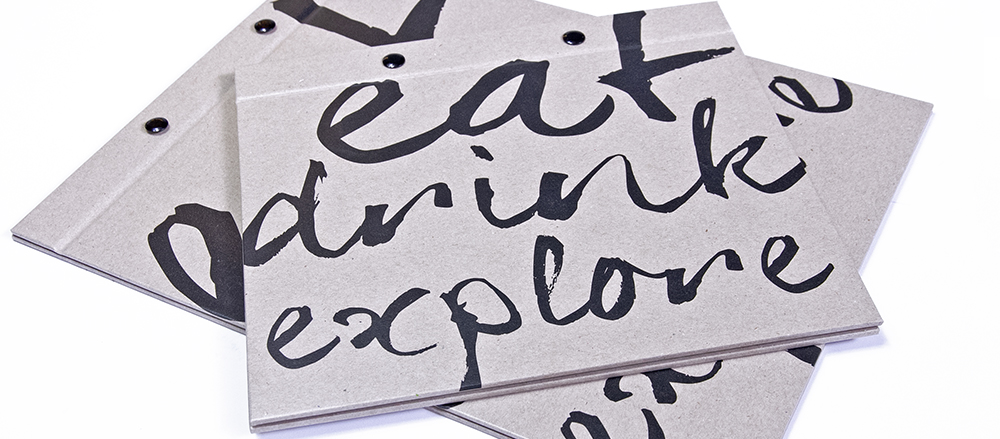 eat
drink
explore